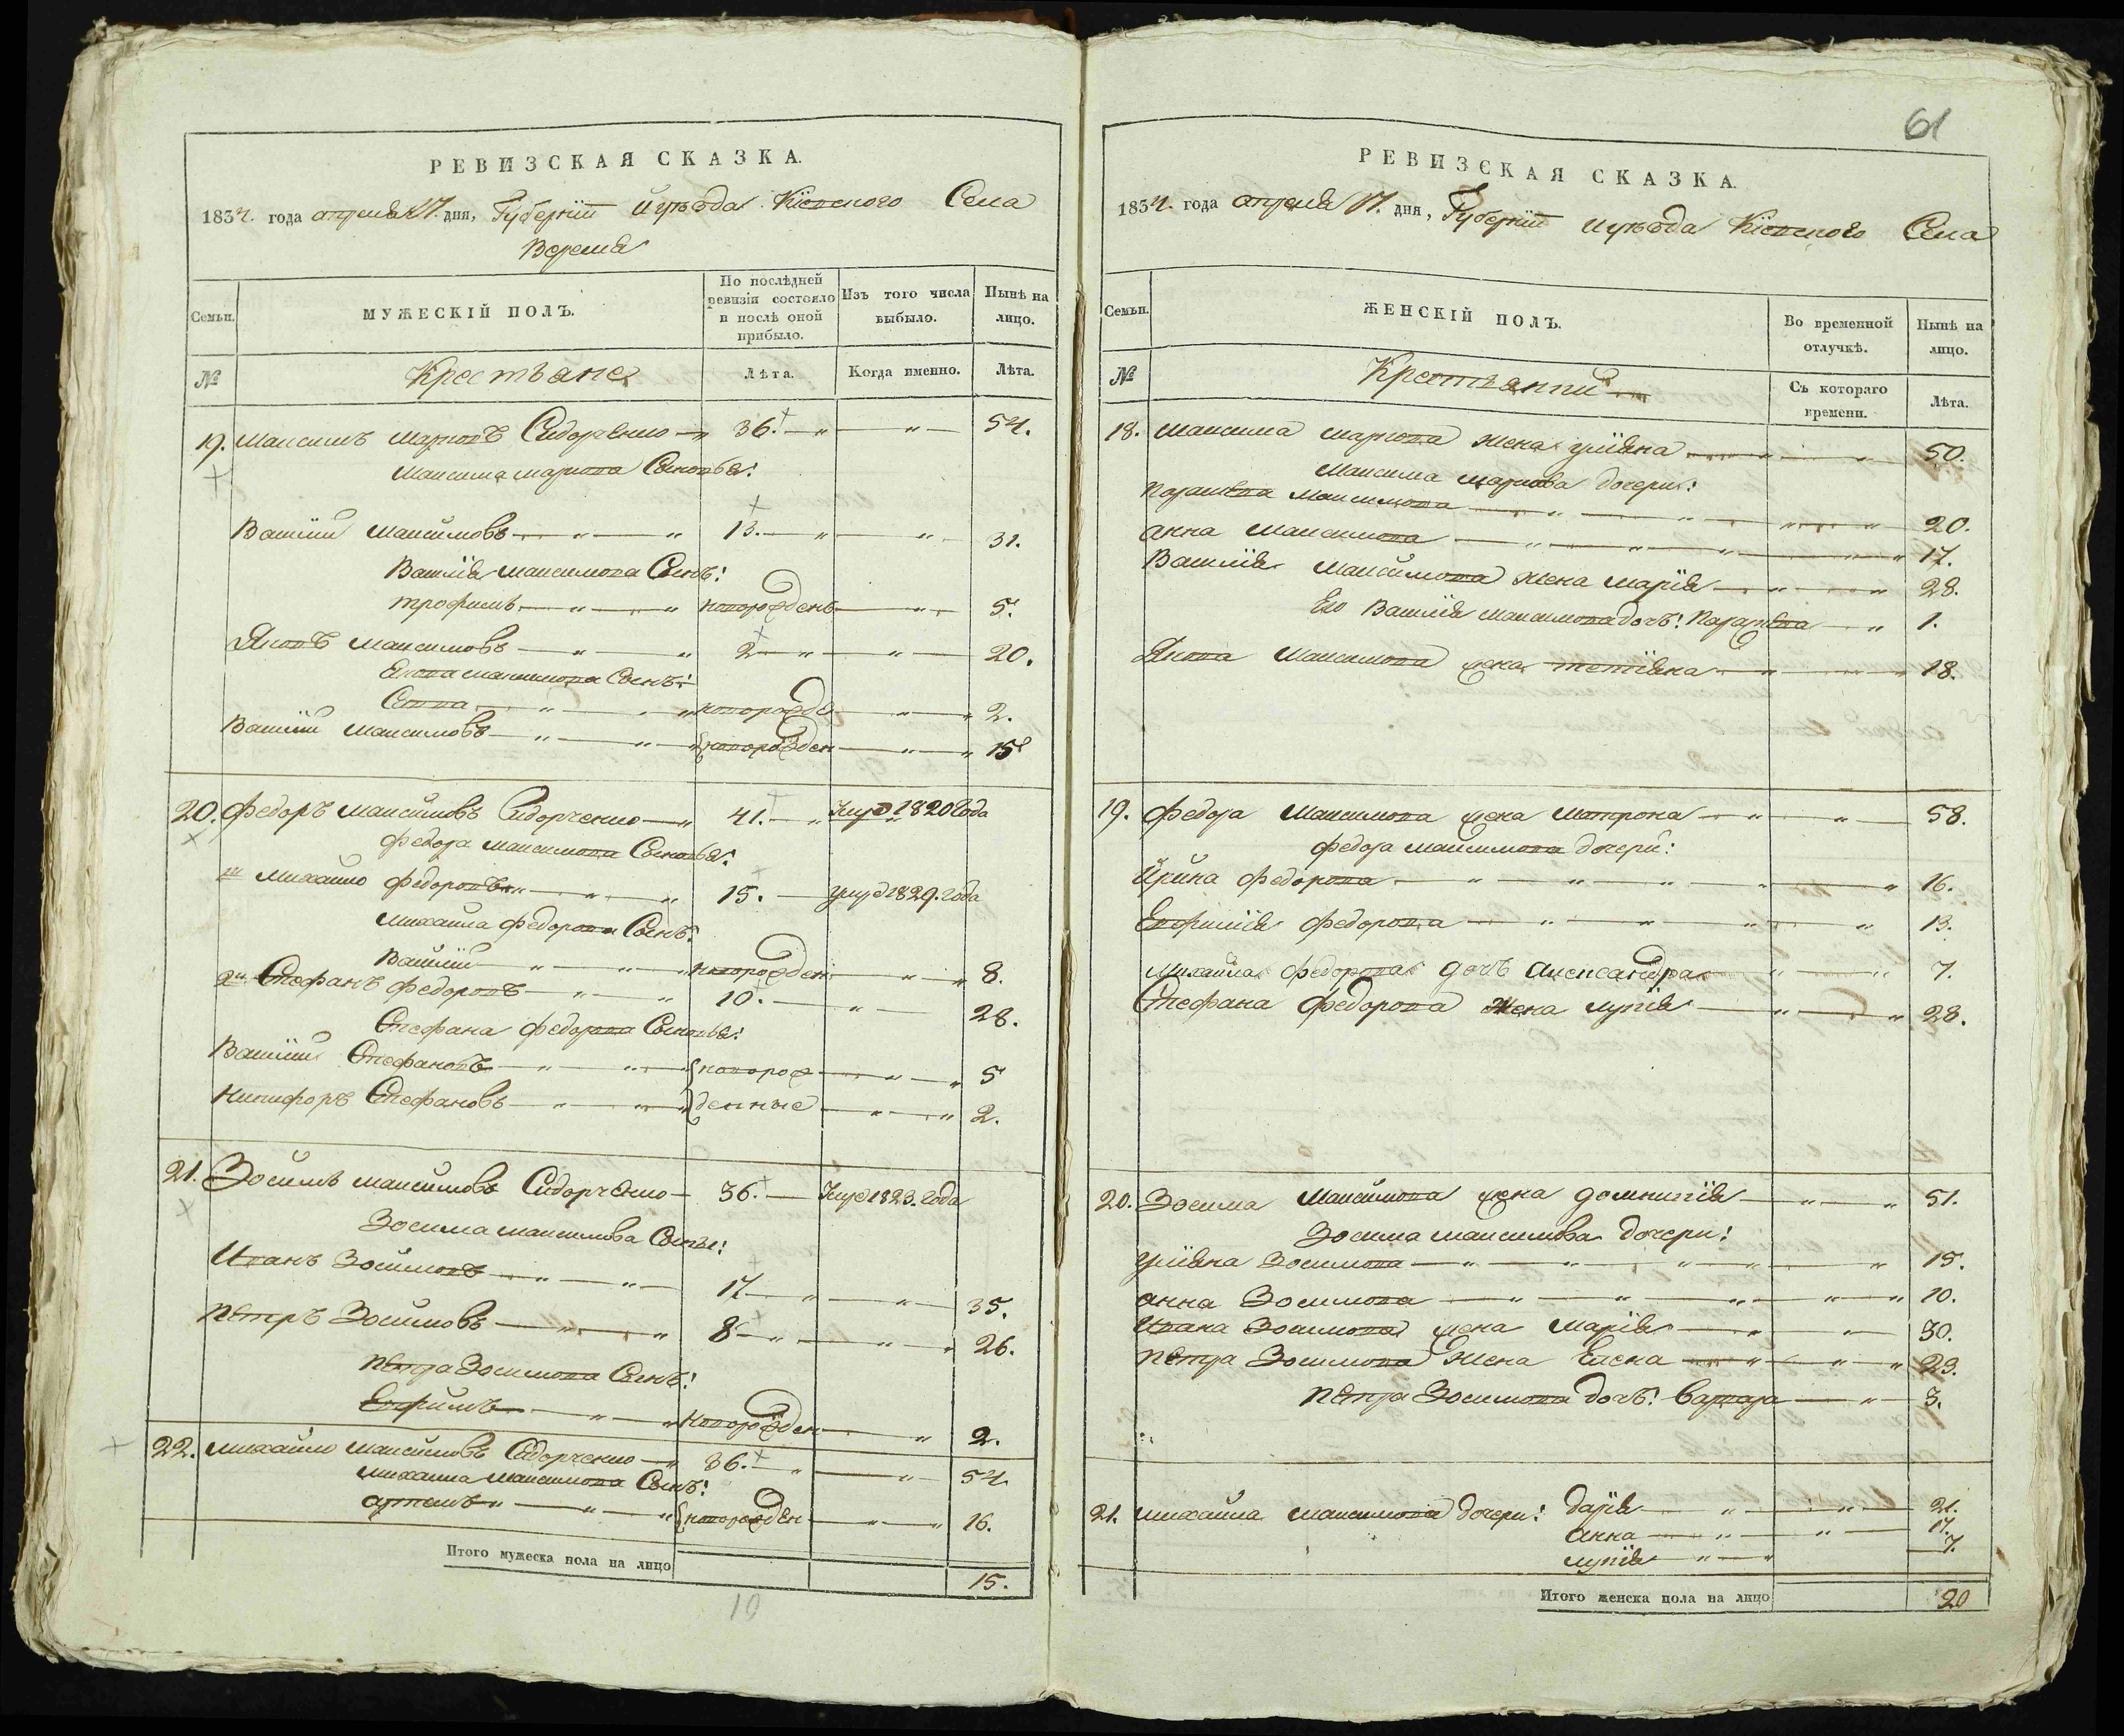 РЕВИЗСКАЯ СКАЗКА.
1834. года апреля 17. дня, Губернїи и уѣзда Кїевского Села
Веремя
Семьи.
МУЖЕСКІЙ ПОЛЪ.
По послѣдней ревизіи состояло и послѣ оной прибыло.
Изъ того числа выбыло.
Нынѣ на лицо.
№
Крестьяне
Лѣта.
Когда именно.
Лѣта.
19. Максимъ Марковъ Сидорченко 36. 54.
Максима Маркова Сыновья:
Василїй Максимовъ 13. 31.
Василїя Максимова Сынъ:
Трофимъ новорожденъ 5.
Яковъ Максимовъ 2 20.
Якова Максимова Сынъ:
Савва новорожде 2.
Василїй Максимовъ новорожден 15
20. Федоръ Максимовъ Сидорченко 41. Умре 1820 Года
Федора Максимова Сыновья:
1й Михайло Федоровъ 15. умре 1829. года
Михайла Федорова Сынъ:
Василїй новорожден 8.
2й Стефанъ Федоровъ 10. 28.
Стефана Федорова Сыновья:
Василїй Стефановъ новорож 5
Никифоръ Стефановъ денные 2.
21. Зосимъ Максимовъ Сидорченко 36. Умре 1823. Года
Зосима Максимова Сыны:
Иванъ Зосимовъ 17 35.
Петръ Зосимовъ 8 26.
Петра Зосимова Сынъ:
Ефимъ новорожден 2.
22. Михайло Максимовъ Сидорченко 36. 54
Михайла Максимова Сынъ:
Артемъ новорожден 16.
Итого мужеска пола на лицо 15.
10
61
РЕВИЗСКАЯ СКАЗКА.
1834. года апреля 17. дня, Губернїи и уѣзда Кїевского Села
Семьи.
ЖЕНСКІЙ ПОЛЪ.
Во временной отлучкѣ.
Нынѣ на лицо.
№
Крестьянки
Съ котораго времени.
Лѣта.
18. Максима Маркова жена Улїяна 50.
Максима Маркова дочери:
Параскева Максимова 20.
Анна Максимова 17.
Василїя Максимова жена Марїя 28.
Его Василїя Максимова дочъ: Параскева 1.
Якова Максимова жена Тетїяна 18.
19. Федора Максимова жена Матрона 58.
Федора Максимова дочери:
Ирина Федорова 16.
Евфимїя Федорова 13.
Михайла Федорова дочъ Александра 7.
Стефана Федорова жена Лукїя 28.
20. Зосима Максимова жена Домникїя 51.
Зосима Максимова дочери:
Улїяна Зосимова 15.
Анна Зосимова 10.
Ивана Зосимова жена Марїя 30.
Петра Зосимова жена Елена 23.
Петра Зосимова дочъ: Варвара 3.
21. Михайла Максимова дочери: Дарїя 21.
Анна 17.
Лукїя 7.
Итого женска пола на лицо 20